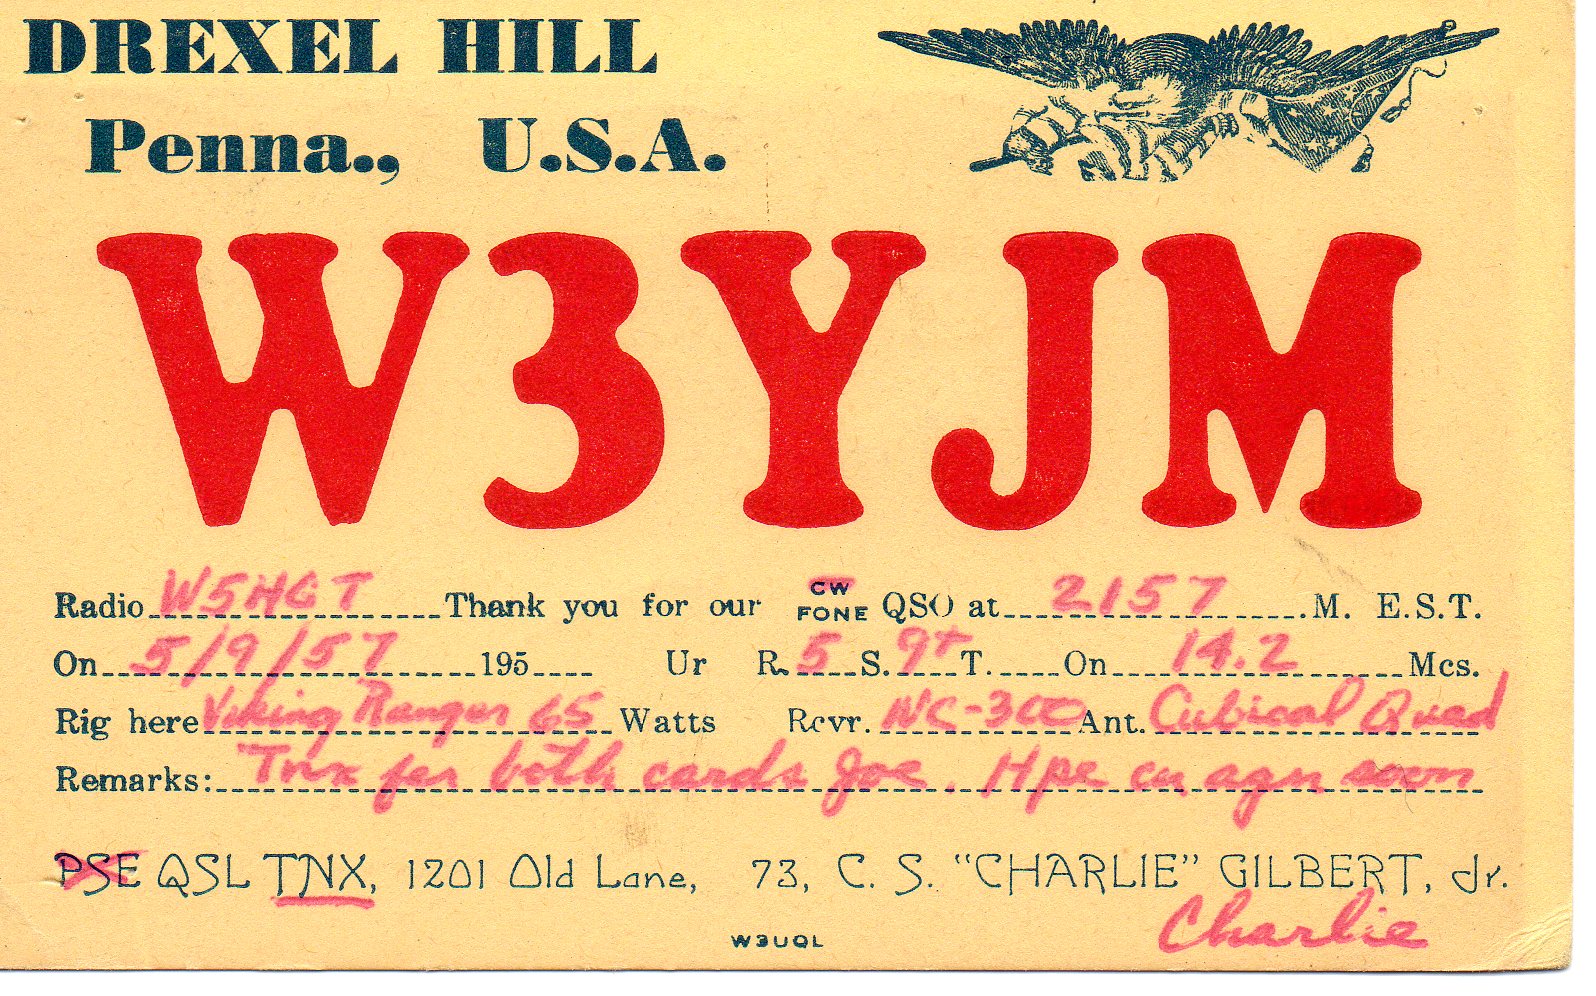 DREXEL HILL
Penna., U.S.A.
W3YJM
Radio W5HGT Thank you for our CW FONE QSO at 2157 M. E.S.T.
On 5/9/57 195 Ur R. 5 S. 9+ T. On 14.2 Mcs.
Rig here Viking Ranger 65 Watts Rcvr. NC-300 Ant. Cubical Quad
Remarks: Tnx fer both cards Joe. Hpe cu agn soon
PSE QSL TNX, 1201 Old Lane, 73, C. S. "CHARLIE" GILBERT, Jr.
Charlie
W3UQL